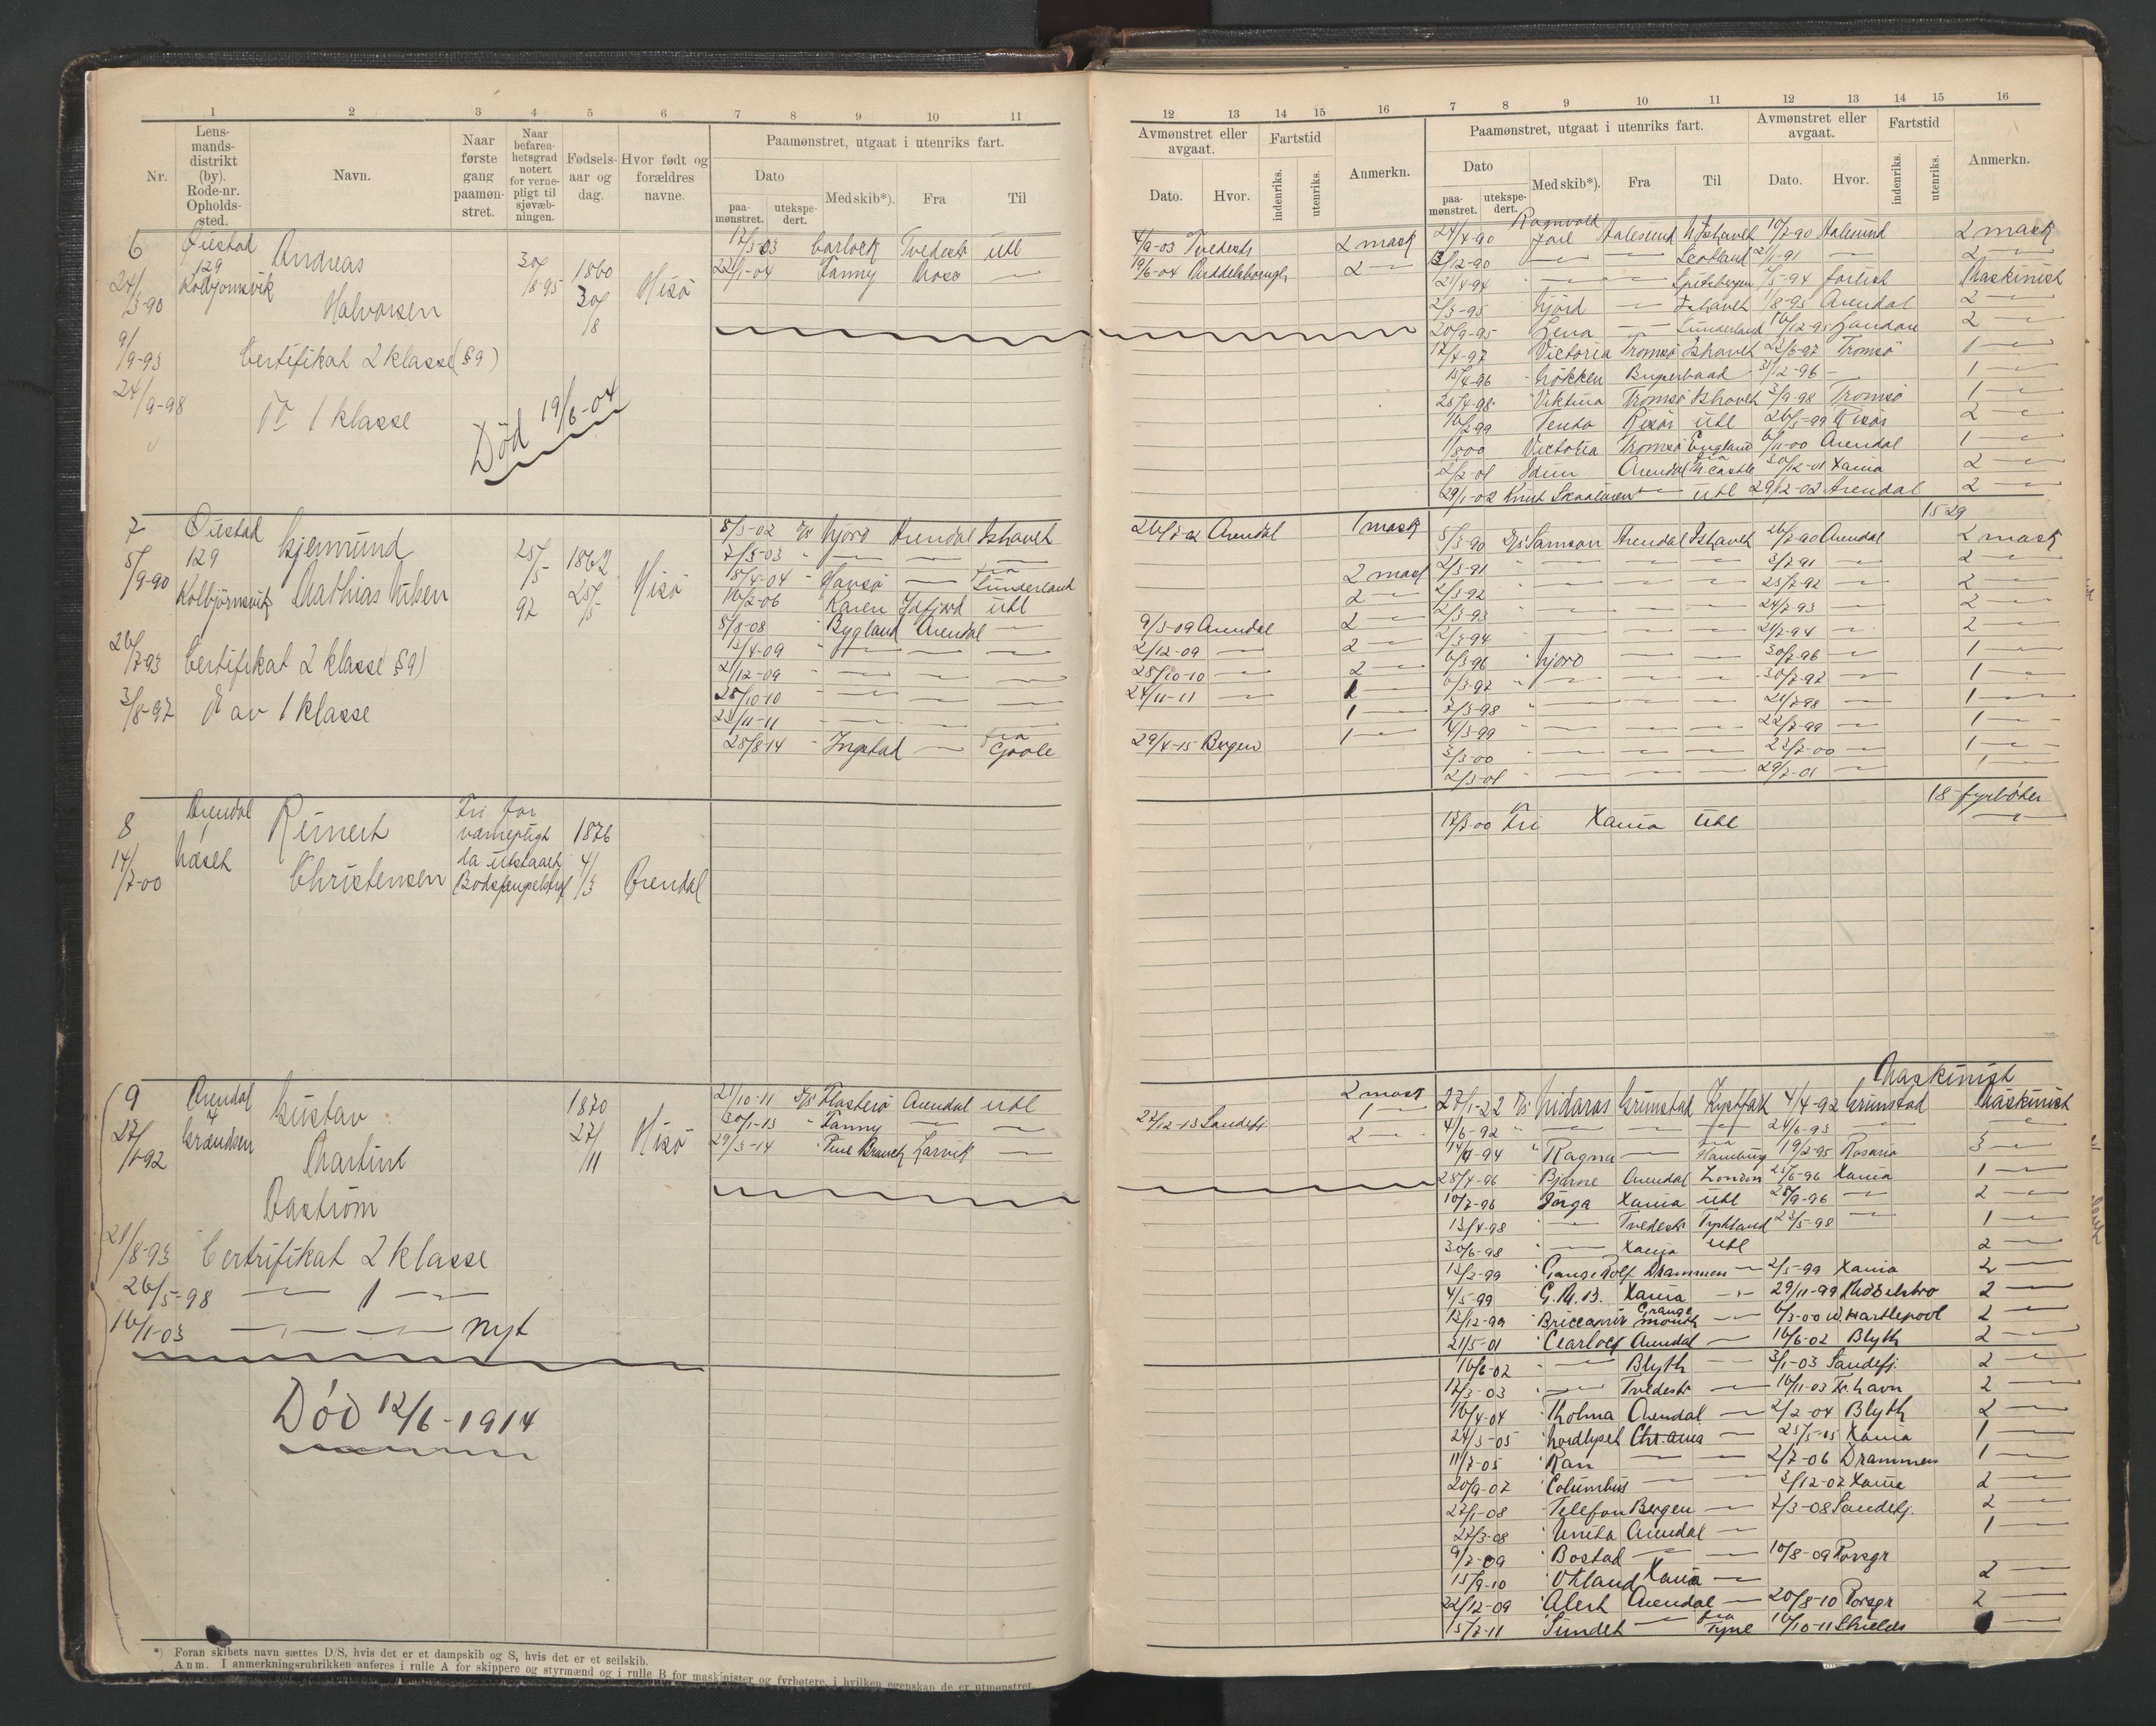 1 2 3 4 5 6 7 8 9 10 11
Nr.
Lens-
mands-
distrikt
(by).
Rode-nr.
Opholds-
sted.
Navn.
Naar
første
gang
paamøn-
stret.
Naar
befaren-
hetsgrad
notert
for verne-
pligt til
sjøvæb-
ningen.
Fødsels-
aar og
dag.
Hvor født og
forældres
navne.
Paamønstret, utgaat i utenriks fart.
Dato
paa-
mønstret.
utekspe-
dert.
Med skib*).
Fra
Til
6
24/3-90
9/9-93
24/9-98
Øiestad
129
Kolbjørnsvik
Andreas
Halvorsen
Certifikat 2 klasse (§9)
1 klasse
Død 19/6-04
30/8-95
1860
30/8
Hisö
17/3-03 Carlock Tvedestr utl
22/1-04 Fanny Moss —
7
5/9-90
26/7-93
3/8-97
Øiestad
129
Kolbjörnsvik
Gjermund
Mathias Nilsen
Certifikat 2 klasse §9)
av 1 klasse
25/5
92
1862
25/5
Hisö
8/3-02 D/S Hjord Arendal Ishavet
7/3-03 " — — —
18/4-04 " Havsö — fra Sunderland
16/2-06 " Karen Idfjord utl
8/8-08 " Bygland Arendal —
13/4-09 " — — —
2/12-09 " — — —
28/10-10 " — — —
23/11-11 " — — —
28/8-14 " Ingstad — fra Goole
8
14/7-00
Arendal
Næset
Reinert
Christensen
Fri for
værnepligt
da utstaaet
1876
4/3
Arendal
9
27/1-92
Arendal
4
Grændsen
Gustav
Martin
Certrifikat 2 klasse
21/8-93
26/5-98 — 1 —
16/1-03 — — — nyt
Død 12/6-1914
1870
27/11
Hisö
21/10-11 D/S Flasterö Arendal utl
30/1-13 " Fanny — —
29/3-14 " Pine Branch Larvik —
*) Foran skibets navn sættes D/S, hvis det er et dampskib og S, hvis det er et seilskib.
Anm. I anmerkningsrubrikken anføres i rulle A for skippere og styrmænd og i rulle B for maskinister og fyrbøtere, i hvilken egenskap de er utmønstret.
12 13 14 15 16 7 8 9 10 11 12 13 14 15 16
Avmønstret eller
avgaat.
Fartstid
Dato. Hvor. indenriks. utenriks. Anmerkn.
Paamønstret, utgaat i utenriks fart.
Dato
paa-
mønstret.
utekspe-
dert.
Med skib*). Fra Til
Avmønstret eller
avgaat.
Dato. Hvor.
Fartstid
indenriks. utenriks.
Anmerkn.
4/9-03 Tvedestr 2 mask
19/6-04 2 —
24/4-90 Ragnvald Jarl Aalesund Ishavet 10/7-90 Aalesund 2 mask
3/12-90 — — Scotland 2/1-91 — 2 —
21/4-94 " — — Spitsbergen 7/5-94 forlist Maskinist
2/3-95 Hjord — Ishavet /8-95 Arendal 2 —
20/9-95 Lena — Sunderland 16/12-95 2 —
17/4-97 Victoria Tromsö Ishavet 22/8-97 Tromsö 1 —
15/4-96 " Nökken 31/12-96 — 1 —
25/4-98 " Viktoria Tromsö Ishavet 3/9-98 Tromsö 1 —
16/2-99 Risör utl 26/5-99 Risör 2 —
1/8 00 Victoria Tromsö England 6/11-00 Arendal 1 —
2/2-01 Idun Arendal fra N Castle 30/12-01 Xania 2 —
29/1-02 Knut Skaaluren — utl 29/12-02 Arendal 2 —
15 29
26/7-02 Arendal 1 mask
2 mask
2 —
9/3-09 Arendal 2 —
2/12-09 — 2 —
28/10-10 — 2 —
24/11-11 — 1 —
1 —
29/4-15 Bergen 1 —
5/3-90 D/S Samson Arendal Ishavet 26/7-90 Arendal 2 mask
2/3-91 " — — — 3/7-91 — 2 —
2/3-92 " — — — 25/7-92 — 2 —
2/3-93 " — — — 24/7-93 — 2 —
2/3-94 " — — — 21/7-94 — 2 —
6/3-96 " Hjord — — 30/7-96 — 1 —
6/3-97 " — — — 30/7-97 — 1 —
7/3-98 " — — — 21/7-98 — 1 —
4/3-99 " — — — 22/7-99 — 1 —
3/3-00 " — — — 23/7-00 — 1 —
2/3-01 " — — — 29/7-01 — 1 —
18 fyrböter
17/7-00 Fri Xania utl —
2 mask
1 —
27/12-13 Sandefj. 2 —
Maskinist
27/1-22 D/S Nidaros Grimstad Kystfart 4/4-92 Grimstad Maskinist
4/6-92 " — — — 24/6-93 — —
14/9-94 " Ragna — fra Hamburg 19/2-95 Rosario 3 —
28/4-96 " Bjarne Arendal London 21/6-96 Xania 1 —
10/7-96 Xania utl 28/9-96 — 2 —
13/4-98 " — Tvedestr Tyskland 23/5-98 — 1 —
30/6-98 " — Xania utl 2 —
13/2-99 " Gange Rolf Drammen — 2/5-99 Xania 2 —
4/5-99 G.M.B. Xania — 29/11-99 Middelsbro 2 —
12/12-99 Grangemouth — 6/3-00 W. Hartlepool 2 —
21/5-01 Arendal — 16/6-02 Blyth 2 —
16/6-02 " — Blyth — 3/1-03 Sandefj. 2 —
17/3-03 " — Tvedestr — 16/11-03 Fr. havn 2 —
16/4-04 " Tholma Arendal — 2/2-04 Blyth 2 —
24/3-05 " Nordlyset Chr.ania — 25/5-05 Xania 1 —
11/7-05 " Ran — — 2/7-06 Drammen 1 —
20/9-07 " Columbus — — 3/12-07 Xania 2 —
27/1-08 " Telefon Bergen — 7/3-08 Sandefj. 2 —
27/3-08 " Unita Arendal — 1 —
9/7-09 " Bostad — — 10/8-09 Porsgr
15/9-10 " Vikland Xania — 2 —
22/12-09 " Alert Arendal — 20/8-10 Porsgr 2 —
15/7-11 " Sundet — fra Tyne 16/10-11 Shields —